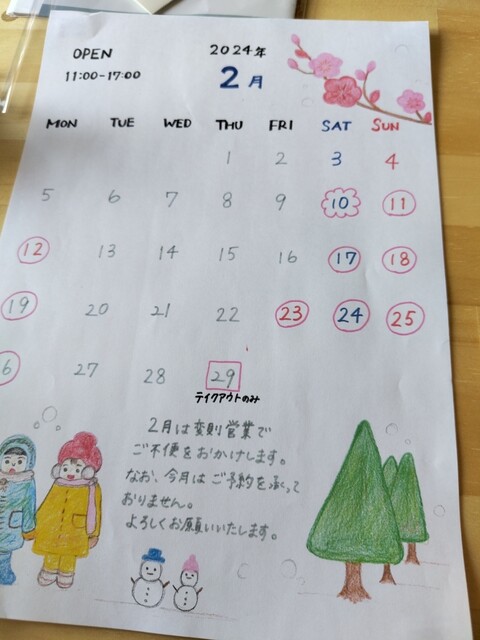 OPEN
11:00-17:00
2024年
2月
MON TUE WED THU FRI SAT SUN
1 2 3 4
5 6 7 8 9 10 11
12 13 14 15 16 17 18
19 20 21 22 23 24 25
6 27 28 29
テイクアウトのみ
2月は変則営業で
ご不便をおかけします。
なお、今月はご予約を承って
おりません。
よろしくお願いいたします。